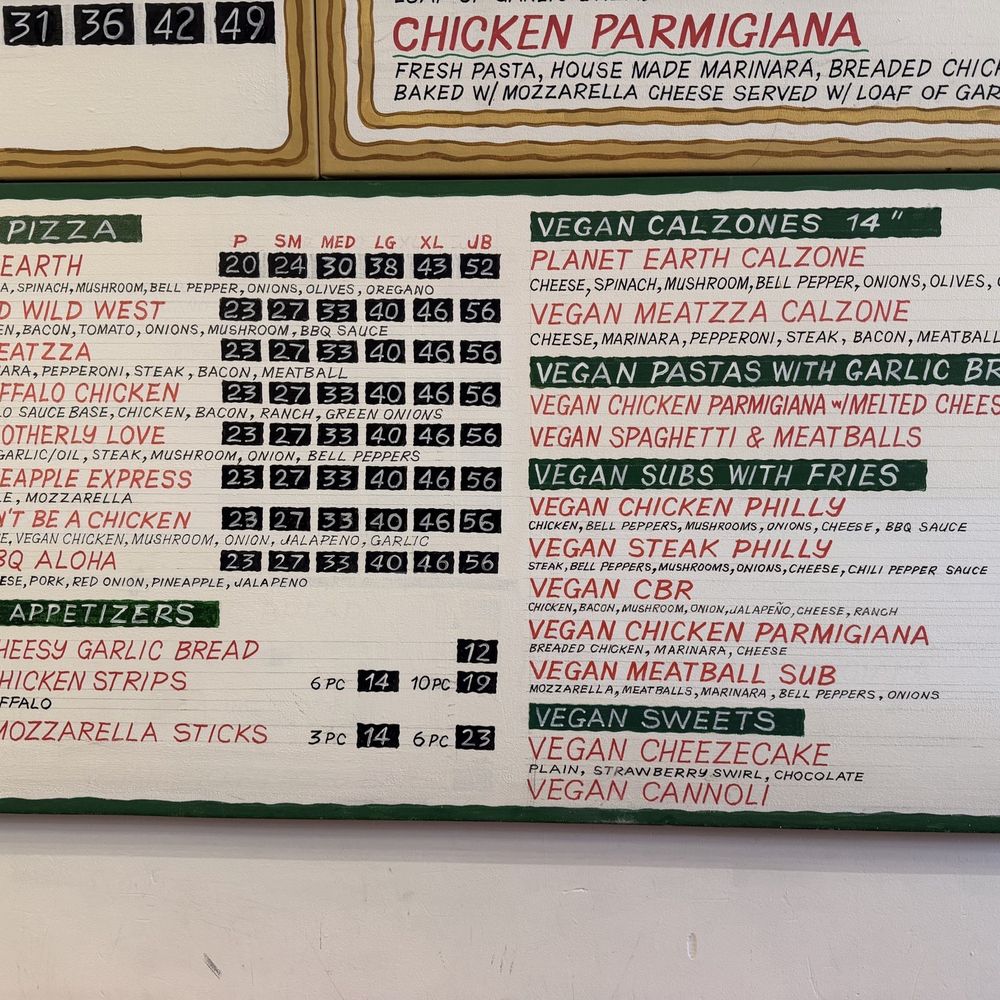 31 36 42 49
CHICKEN PARMIGIANA
FRESH PASTA, HOUSE MADE MARINARA, BREADED CHICK
BAKED W/ MOZZARELLA CHEESE SERVED W/ LOAF OF GAR
PIZZA
P SM MED LG XL JB
EARTH 20 24 30 38 43 52
A, SPINACH, MUSHROOM, BELL PEPPER, ONIONS, OLIVES, OREGANO
D WILD WEST 23 27 33 40 46 56
EN, BACON, TOMATO, ONIONS, MUSHROOM, BBQ SAUCE
EATZZA 23 27 33 40 46 56
ARA, PEPPERONI, STEAK, BACON, MEATBALL
FFALO CHICKEN 23 27 33 40 46 56
LO SAUCE BASE, CHICKEN, BACON, RANCH, GREEN ONIONS
OTHERLY LOVE 23 27 33 40 46 56
GARLIC/OIL, STEAK, MUSHROOM, ONION, BELL PEPPERS
EAPPLE EXPRESS 23 27 33 40 46 56
LE, MOZZARELLA
N'T BE A CHICKEN 23 27 33 40 46 56
E, VEGAN CHICKEN, MUSHROOM, ONION, JALAPENO, GARLIC
BQ ALOHA 23 27 33 40 46 56
ESE, PORK, RED ONION, PINEAPPLE, JALAPENO
APPETIZERS
HEESY GARLIC BREAD 12
HICKEN STRIPS 6 PC 14 10 PC 19
FFALO
MOZZARELLA STICKS 3 PC 14 6 PC 23
VEGAN CALZONES 14"
PLANET EARTH CALZONE
CHEESE, SPINACH, MUSHROOM, BELL PEPPER, ONIONS, OLIVES,
VEGAN MEATZZA CALZONE
CHEESE, MARINARA, PEPPERONI, STEAK, BACON, MEATBALL
VEGAN PASTAS WITH GARLIC BR
VEGAN CHICKEN PARMIGIANA w/MELTED CHEES
VEGAN SPAGHETTI & MEATBALLS
VEGAN SUBS WITH FRIES
VEGAN CHICKEN PHILLY
CHICKEN, BELL PEPPERS, MUSHROOMS, ONIONS, CHEESE, BBQ SAUCE
VEGAN STEAK PHILLY
STEAK, BELL PEPPERS, MUSHROOMS, ONIONS, CHEESE, CHILI PEPPER SAUCE
VEGAN CBR
CHICKEN, BACON, MUSHROOM, ONION, JALAPEÑO, CHEESE, RANCH
VEGAN CHICKEN PARMIGIANA
BREADED CHICKEN, MARINARA, CHEESE
VEGAN MEATBALL SUB
MOZZARELLA, MEATBALLS, MARINARA, BELL PEPPERS, ONIONS
VEGAN SWEETS
VEGAN CHEEZECAKE
PLAIN, STRAWBERRY SWIRL, CHOCOLATE
VEGAN CANNOLI